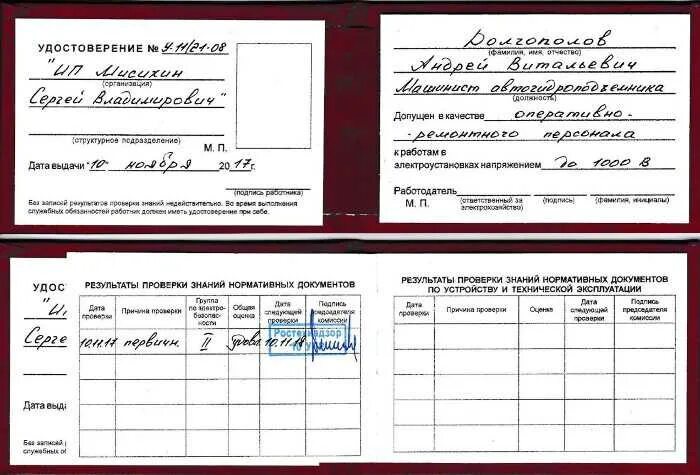 УДОСТОВЕРЕНИЕ № У-11/21-08
"ИП Мисихин
(организация)
Сергей Владимирович"
(структурное подразделение)
М. П.
Дата выдачи "10" ноября 2017г.
(подпись работника)
Без записей результатов проверки знаний недействительно. Во время выполнения
служебных обязанностей работник должен иметь удостоверение при себе.
Долгополов
(фамилия, имя, отчество)
Андрей Витальевич
Машинист автогидроподъемника
(должность)
Допущен в качестве оперативно-
-ремонтного персонала
к работам в
электроустановках напряжением до 1000 В
Работодатель
М. П. (ответственный за электрохозяйство) (подпись) (фамилия, инициалы)
УДОСТ
"И
Серге
Дата выда
Без записей р
служебных об
РЕЗУЛЬТАТЫ ПРОВЕРКИ ЗНАНИЙ НОРМАТИВНЫХ ДОКУМЕНТОВ
Дата проверки Причина проверки Группа по электробезопасности Общая оценка Дата следующей проверки Подпись председателя комиссии
10.11.17 первичн. II удовл. 10.11.18
Ростехнадзор
РЕЗУЛЬТАТЫ ПРОВЕРКИ ЗНАНИЙ НОРМАТИВНЫХ ДОКУМЕНТОВ
ПО УСТРОЙСТВУ И ТЕХНИЧЕСКОЙ ЭКСПЛУАТАЦИИ
Дата проверки Причина проверки Оценка Дата следующей проверки Подпись председателя комиссии